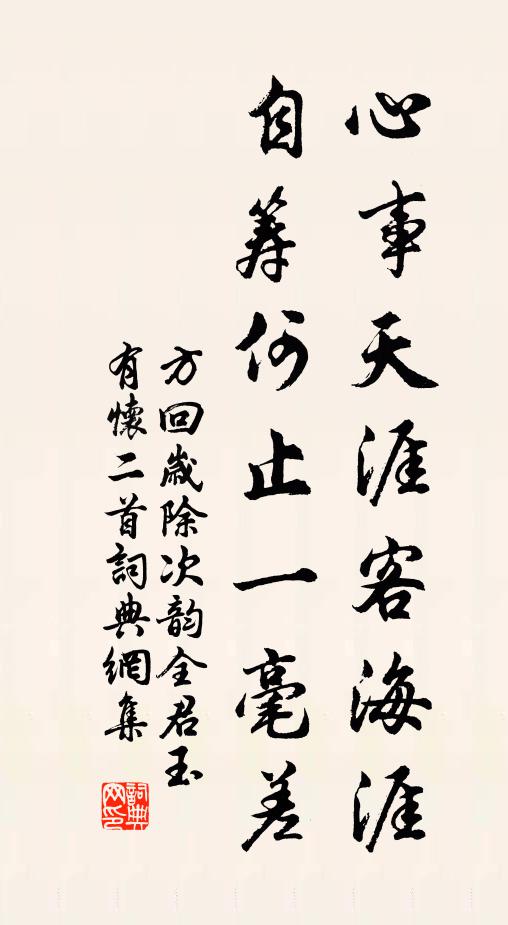 心事天涯客海涯
自筭何止一毫差
方回歲除次韵全君玉
有懷二首詞典網集
詞典
网印